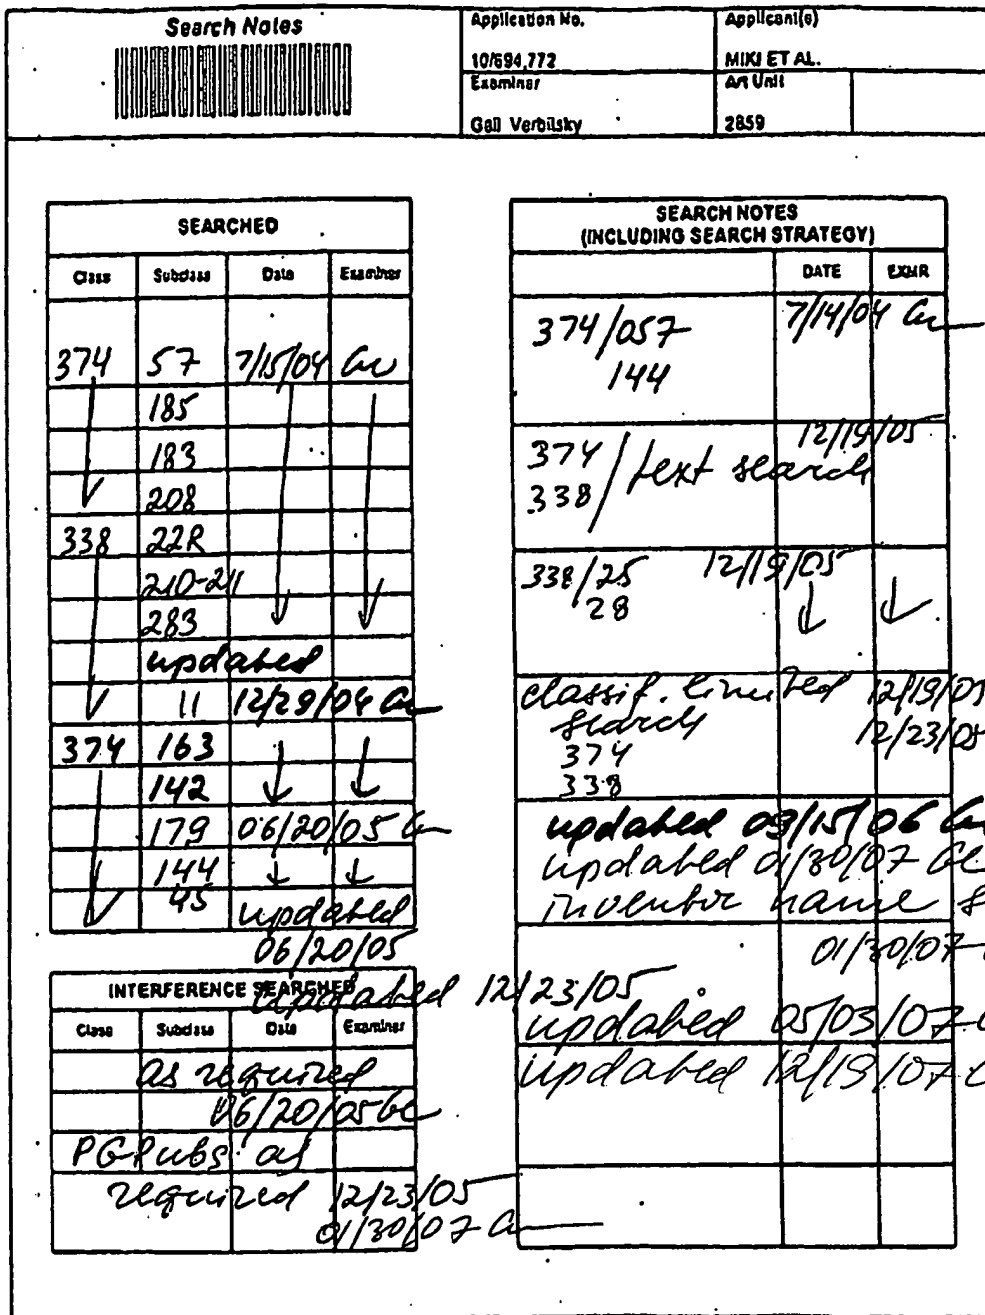 Search Notes
Application No.
Applicant(s)
10/694,772
MIKI ET AL.
Examiner
Art Unit
Gail Verbitsky
2859
SEARCHED
Class Subclass Date Examiner
374 57 7/15/04
185
183
208
338 22R
210-211
283
updated
11 12/29/04
374 163
142
179 06/20/05
144
45 updated
06/20/05
updated 12/23/05
INTERFERENCE SEARCHED
Class Subclass Date Examiner
as required
06/20/05
PGPubs as
required 12/23/05
01/30/07
SEARCH NOTES
(INCLUDING SEARCH STRATEGY)
DATE EXMR
374/057 7/14/04
144
12/19/05
374
338 / text search
338/25 12/19/05
28
classif. limited 12/19/05
search 12/23/05
374
338
updated 09/15/06
updated 01/30/07
inventor name
01/30/07
updated 05/03/07
updated 12/19/07